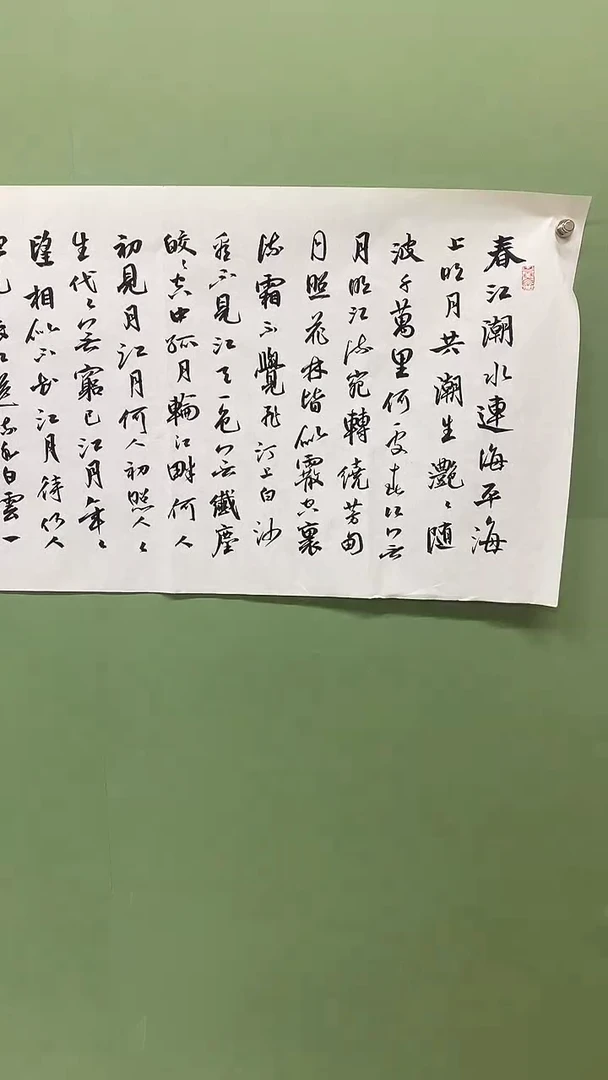 春江潮水連海平海
上明月共潮生灧〻随
波千萬里何處春江無
月明江流宛轉繞芳甸
月照花林皆似霰空裏
流霜不覺飛汀上白沙
看不見江天一色無纖塵
皎〻空中孤月輪江畔何人
初見月江月何人初照人〻
生代〻無窮已江月年〻
望相似不知江月待何人
見長江送流水白雲一